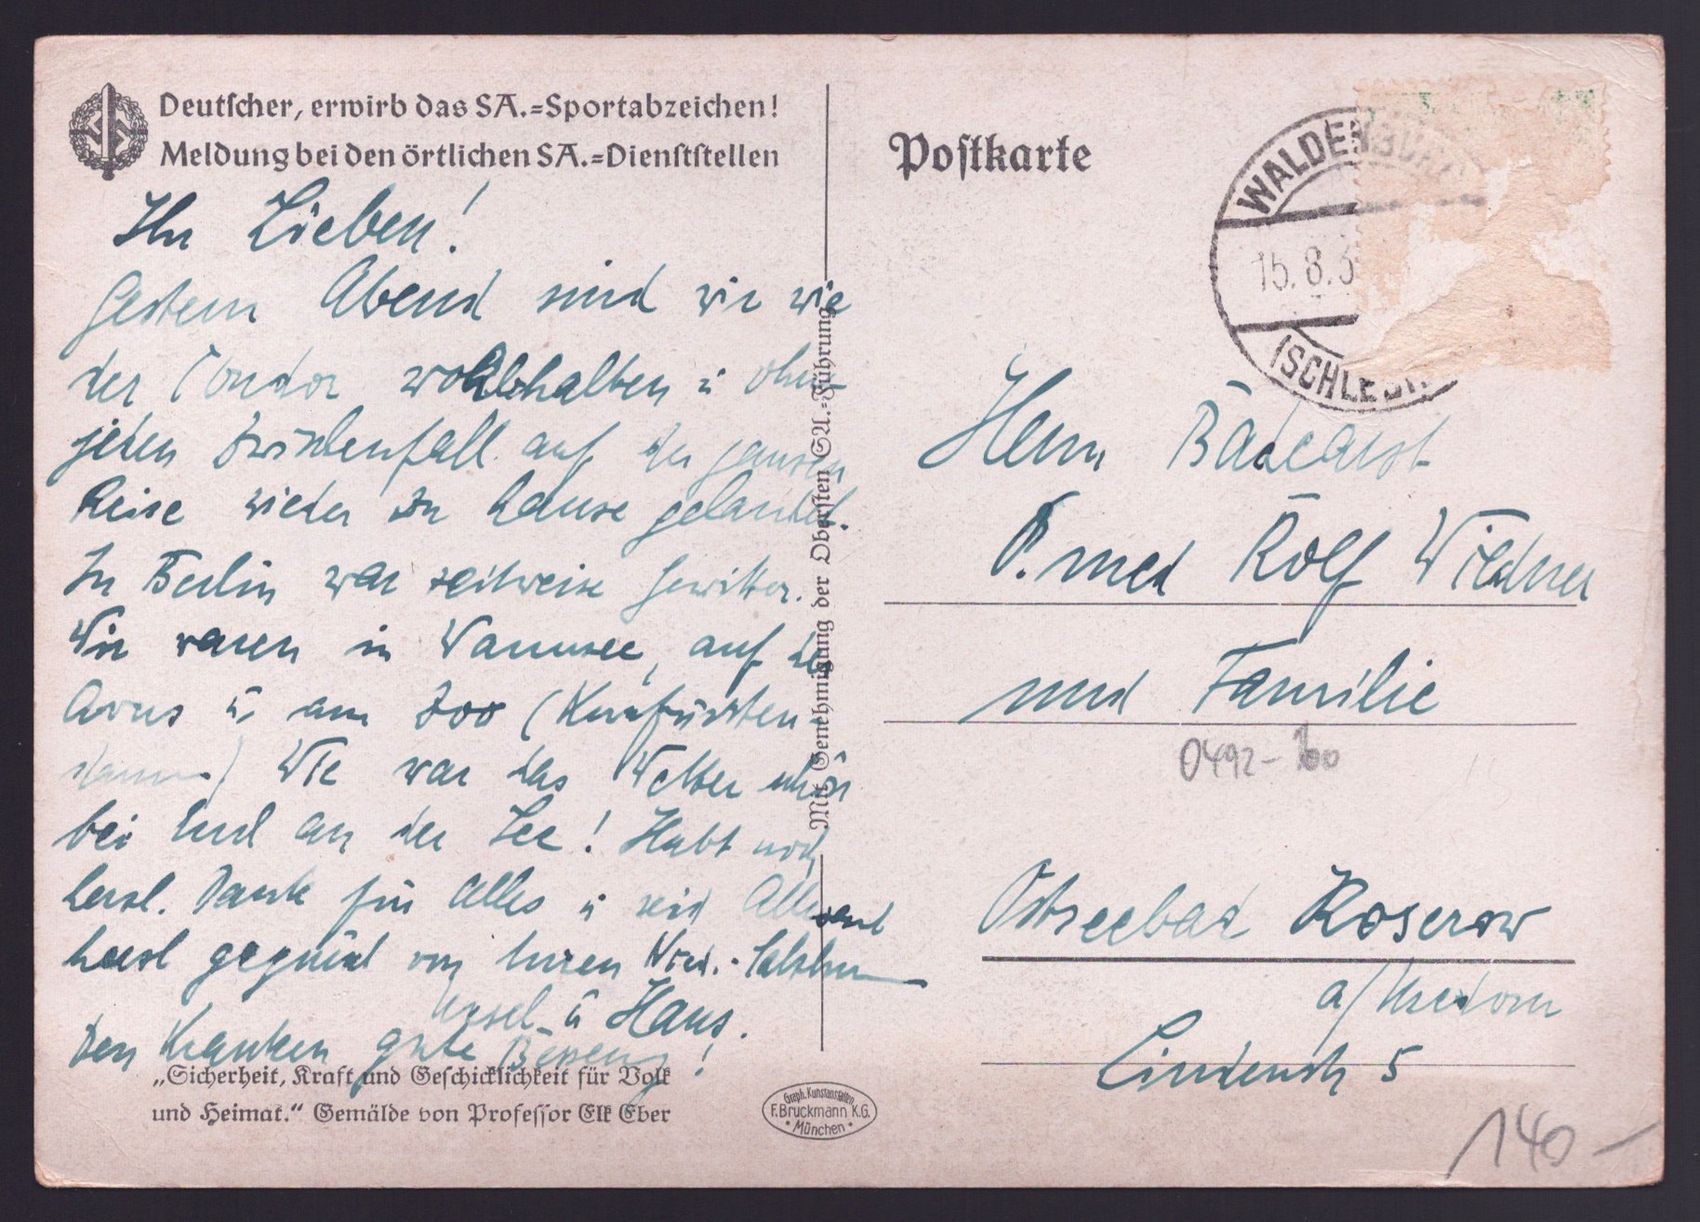 Deutscher, erwirb das SA.=Sportabzeichen!
Meldung bei den örtlichen SA.=Dienststellen
Ihr Lieben!
Gestern Abend sind wir wie
der Condor wohlbehalten u ohne
jeden Zwischenfall auf der ganzen
Reise wieder zu Hause gelandet.
In Berlin war zeitweise Gewitter.
Wir waren in Wannsee, auf der
Avus u. am Zoo (Kurfürsten-
damm) Wie war das Wetter
bei Euch an der See! Habt noch
herzl. Dank für Alles u seid Allesamt
herzl gegrüßt von Euren
Ursel u Hans.
Den Kranken gute Besserung!
„Sicherheit, Kraft und Geschicklichkeit für Volk
und Heimat.“ Gemälde von Professor Elk Eber
Mit Genehmigung der Obersten SA.=Führung
Graph. Kunstanstalten
F. Bruckmann K.G.
• München •
Postkarte
WALDENBURG
15.8.3
(SCHLES
Herrn Badearzt
Dr. med Rolf Wildner
und Familie
0492-100
Ostseebad Koserow
a/Usedom
Lindenstr 5
140 –